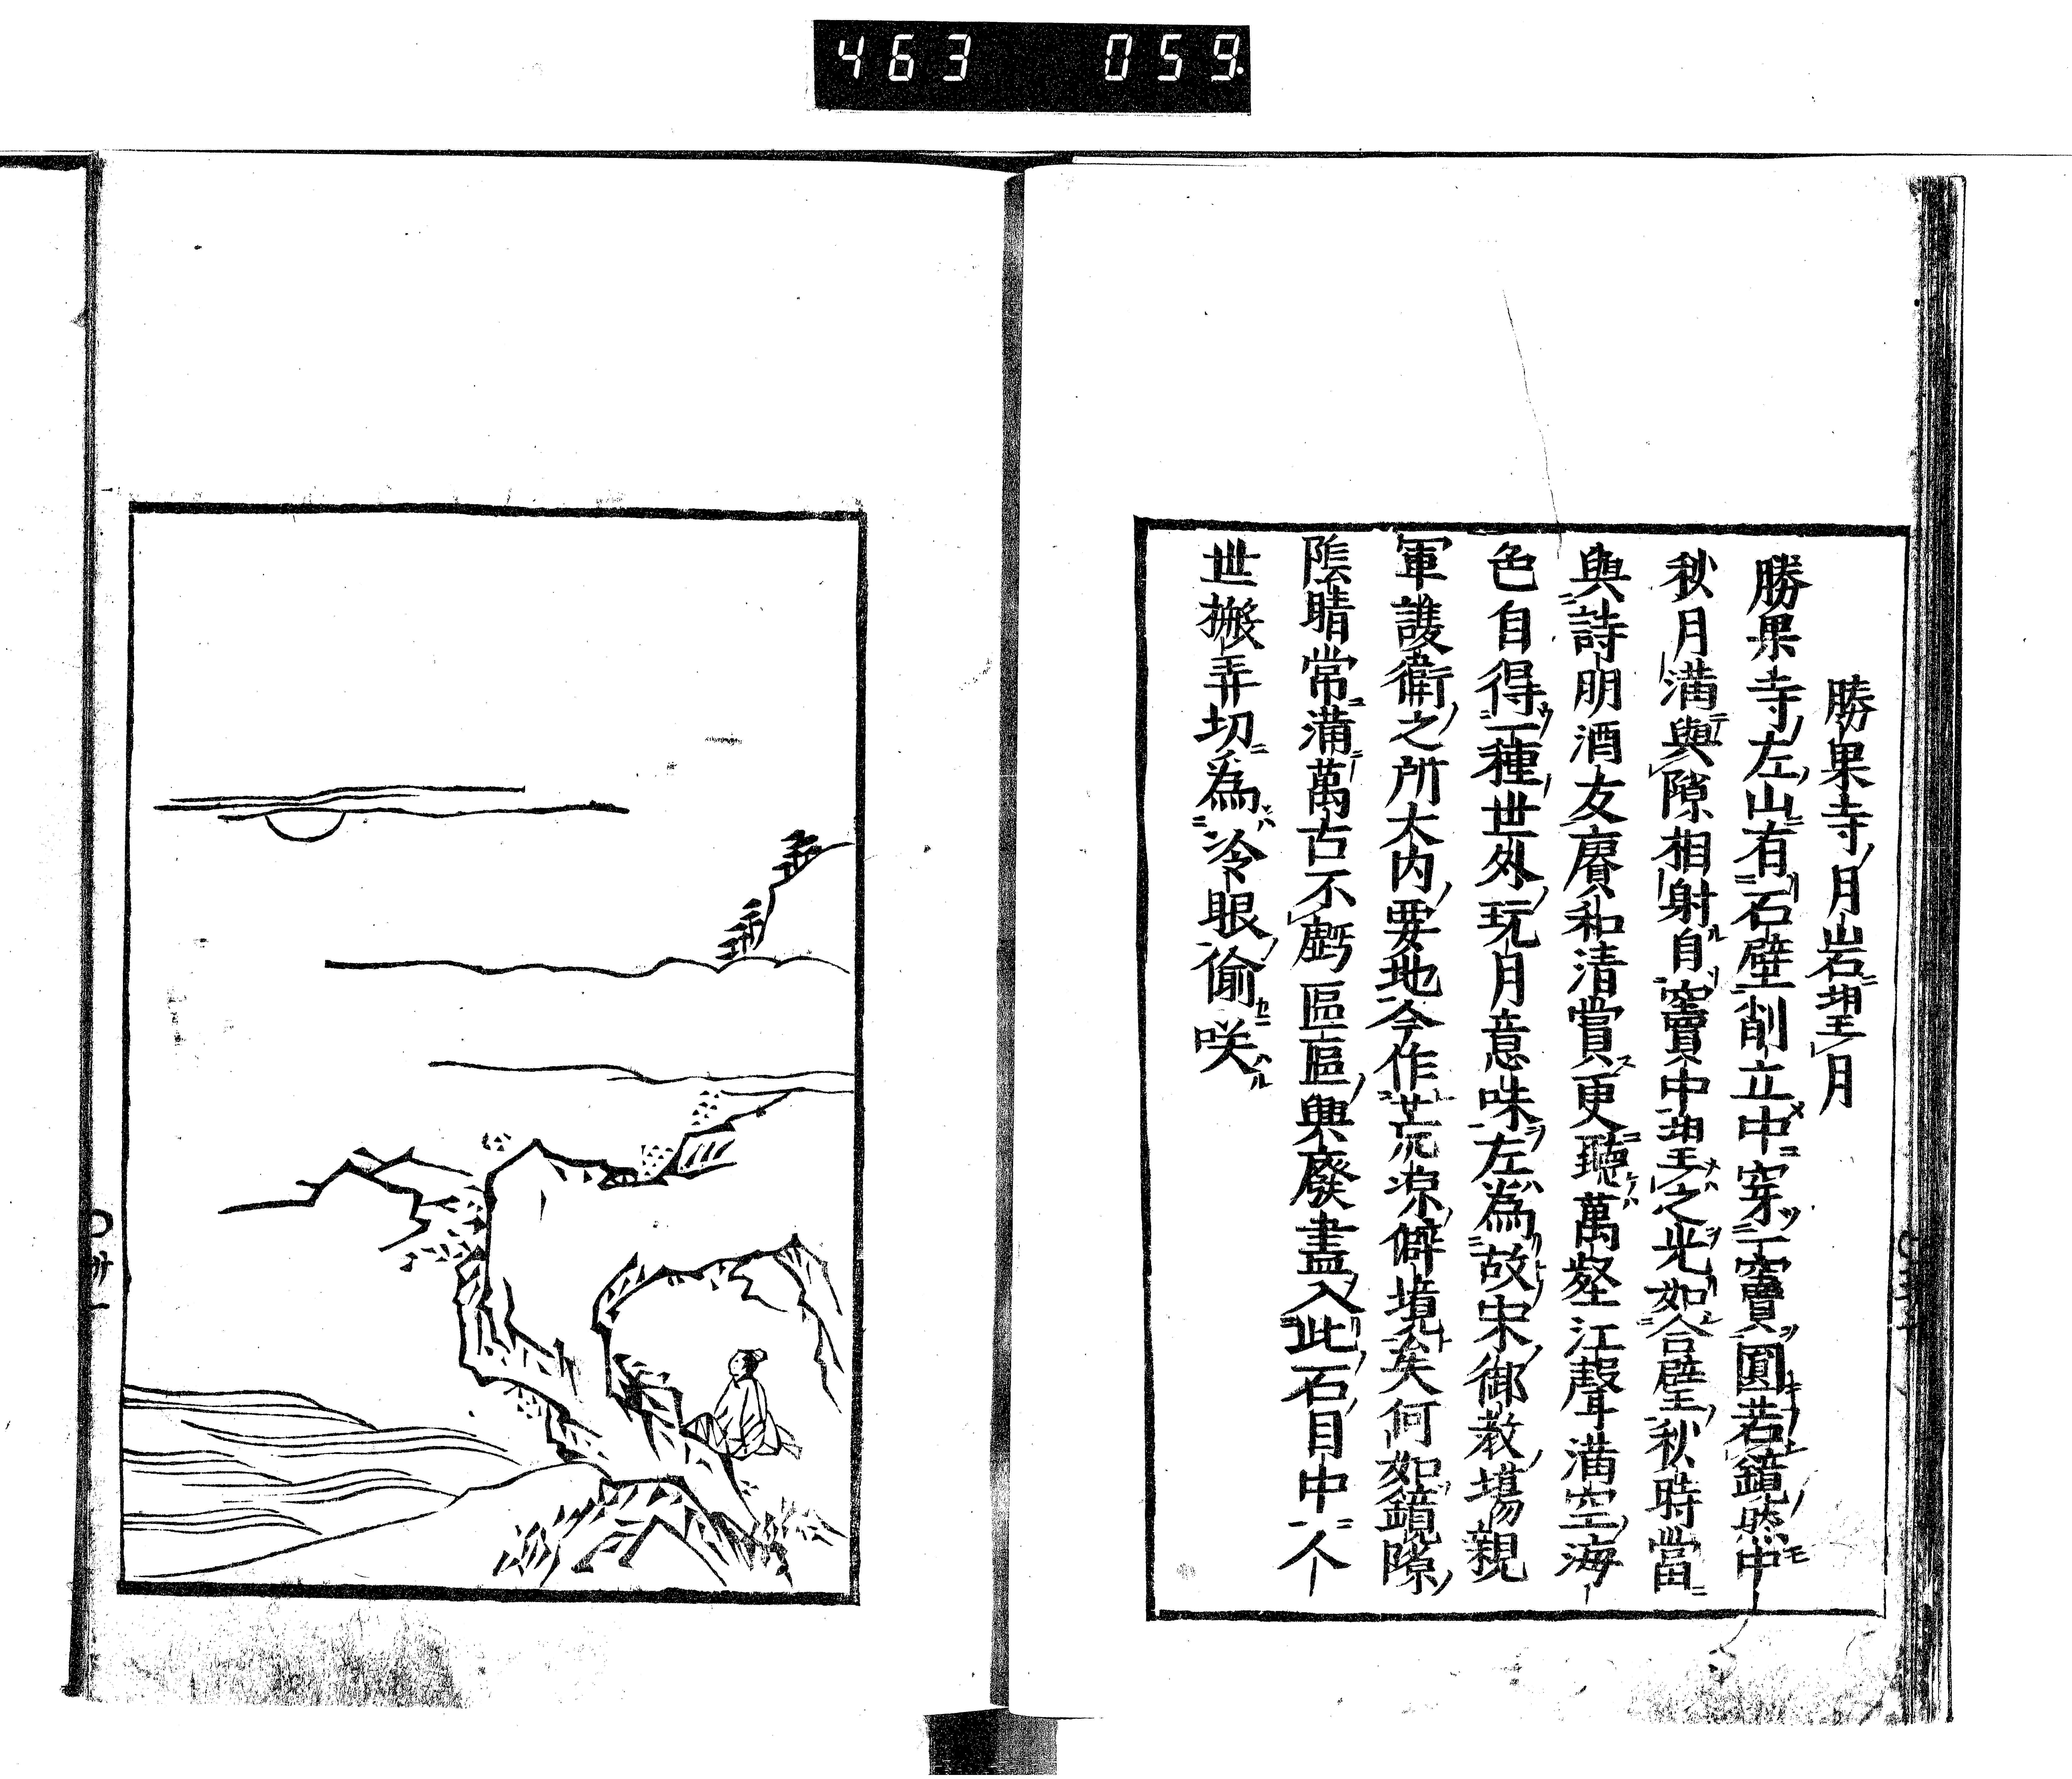 463 059
勝果寺月岩望月
勝果寺左山有石壁削立中穿一竇圓若鏡然中
秋月滿與隙相射自竇中望之光如合璧秋時當
與詩朋酒友賡和清賞更聽萬壑江聲滿空海
色自得一種世外玩月意味左為故宋御教場親
軍護衛之所大內要地今作荒凉僻境矣何如鏡隙
陰晴常滿萬古不虧區區興廢盡入此石目中人
世搬弄切為冷眼偷咲